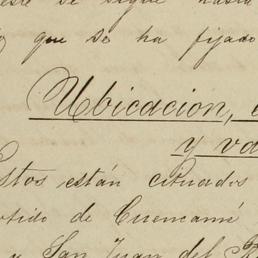 se sigue hasta
que se ha fijado
Ubicacion,
y va
Estos están cituados
rtido de Cuencamé
y San Juan del R